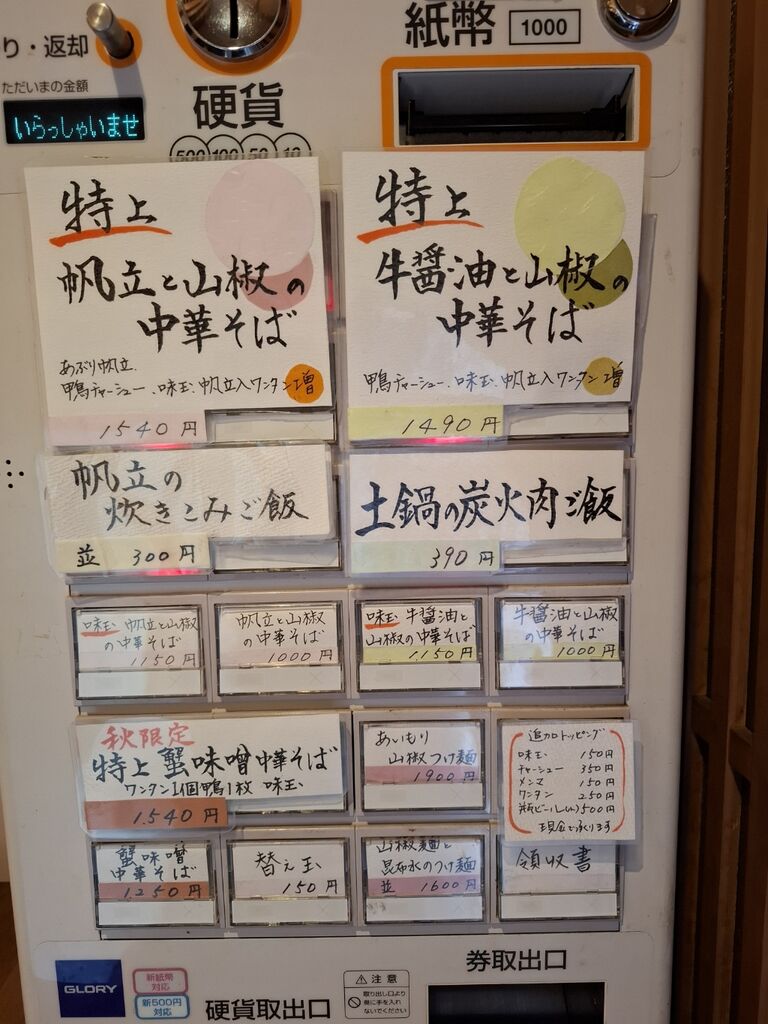 り・返却
ただいまの金額
いらっしゃいませ
硬貨
500 100 50 10
紙幣 1000
特上
帆立と山椒の
中華そば
あぶり帆立、
鴨チャーシュー、味玉、帆立入ワンタン増
1540円
特上
牛醤油と山椒の
中華そば
鴨チャーシュー、味玉、帆立入ワンタン増
1490円
帆立の
炊きこみご飯
並 300円
土鍋の炭火肉ご飯
390円
味玉 帆立と山椒
の中華そば
1150円
帆立と山椒
の中華そば
1000円
味玉 牛醤油と
山椒の中華そば
1,150円
牛醤油と山椒
の中華そば
1000円
秋限定
特上 蟹味噌中華そば
ワンタン1個鴨1枚 味玉
1.540円
あいもり
山椒つけ麺
1900円
追加トッピング
味玉 150円
チャーシュー 350円
メンマ 150円
ワンタン 250円
瓶ビール(小)500円
現金で承ります
蟹味噌
中華そば
1250円
替え玉
150円
山椒麺と
昆布水のつけ麺
並 1600円
領収書
GLORY
新紙幣
対応
新500円
対応
硬貨取出口
注意
取り出し口より
奥に手を入れ
ないでください
券取出口